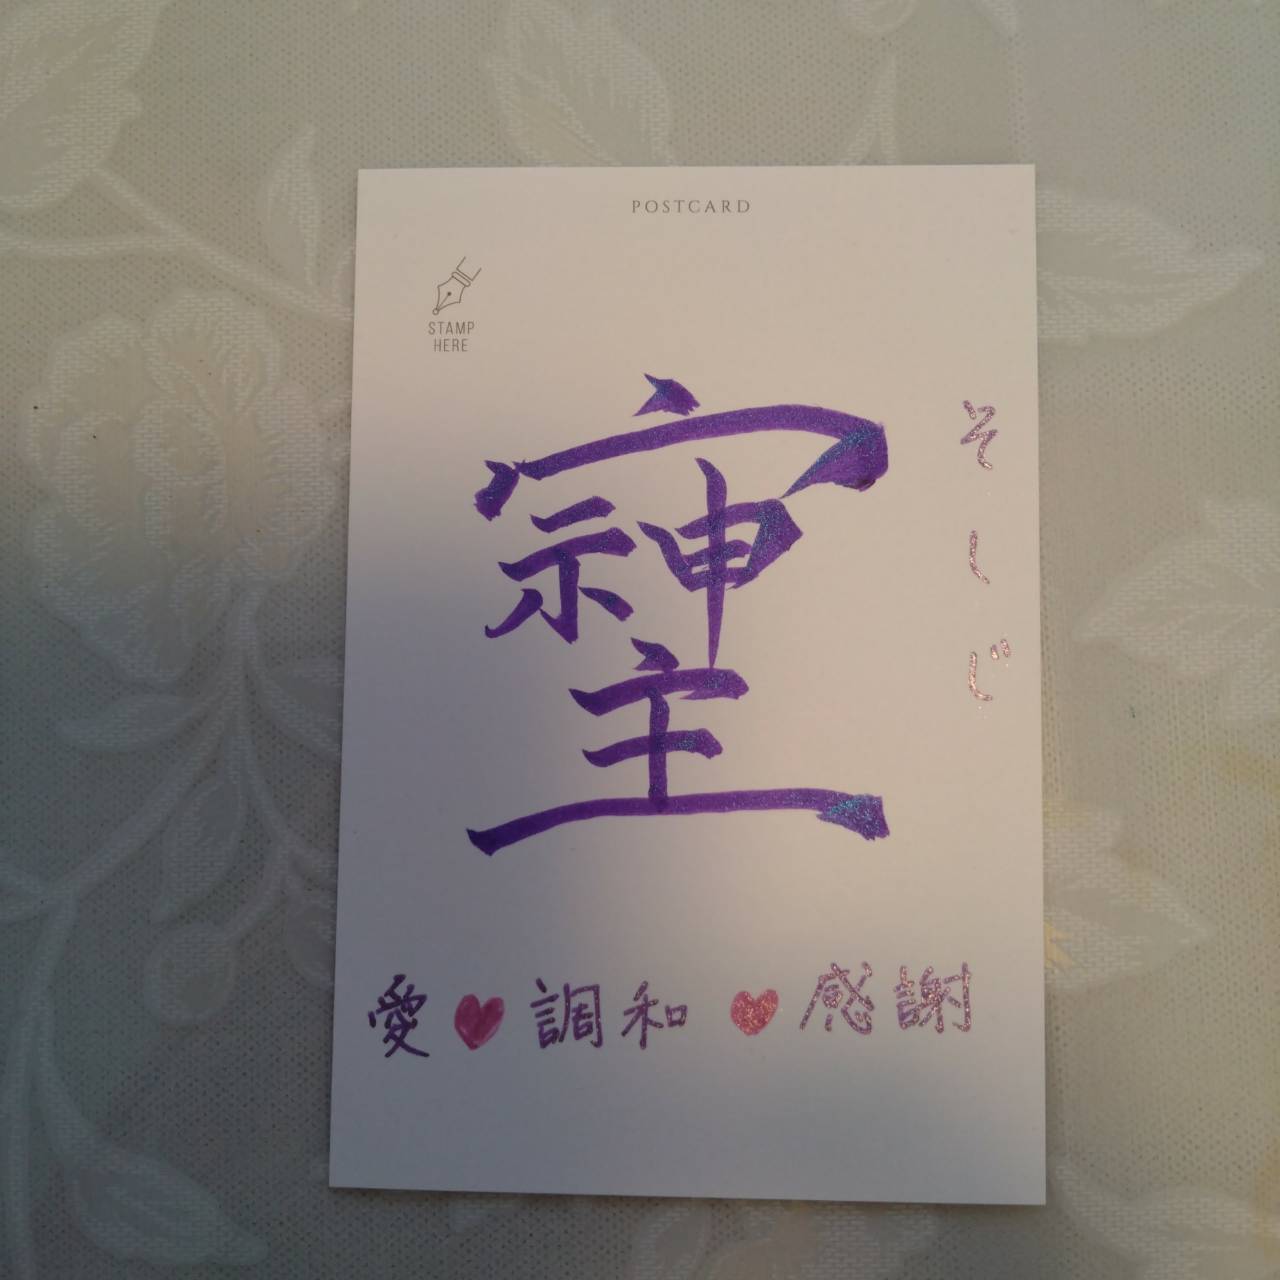 POSTCARD
STAMP
HERE
そしじ
愛♥調和♥感謝